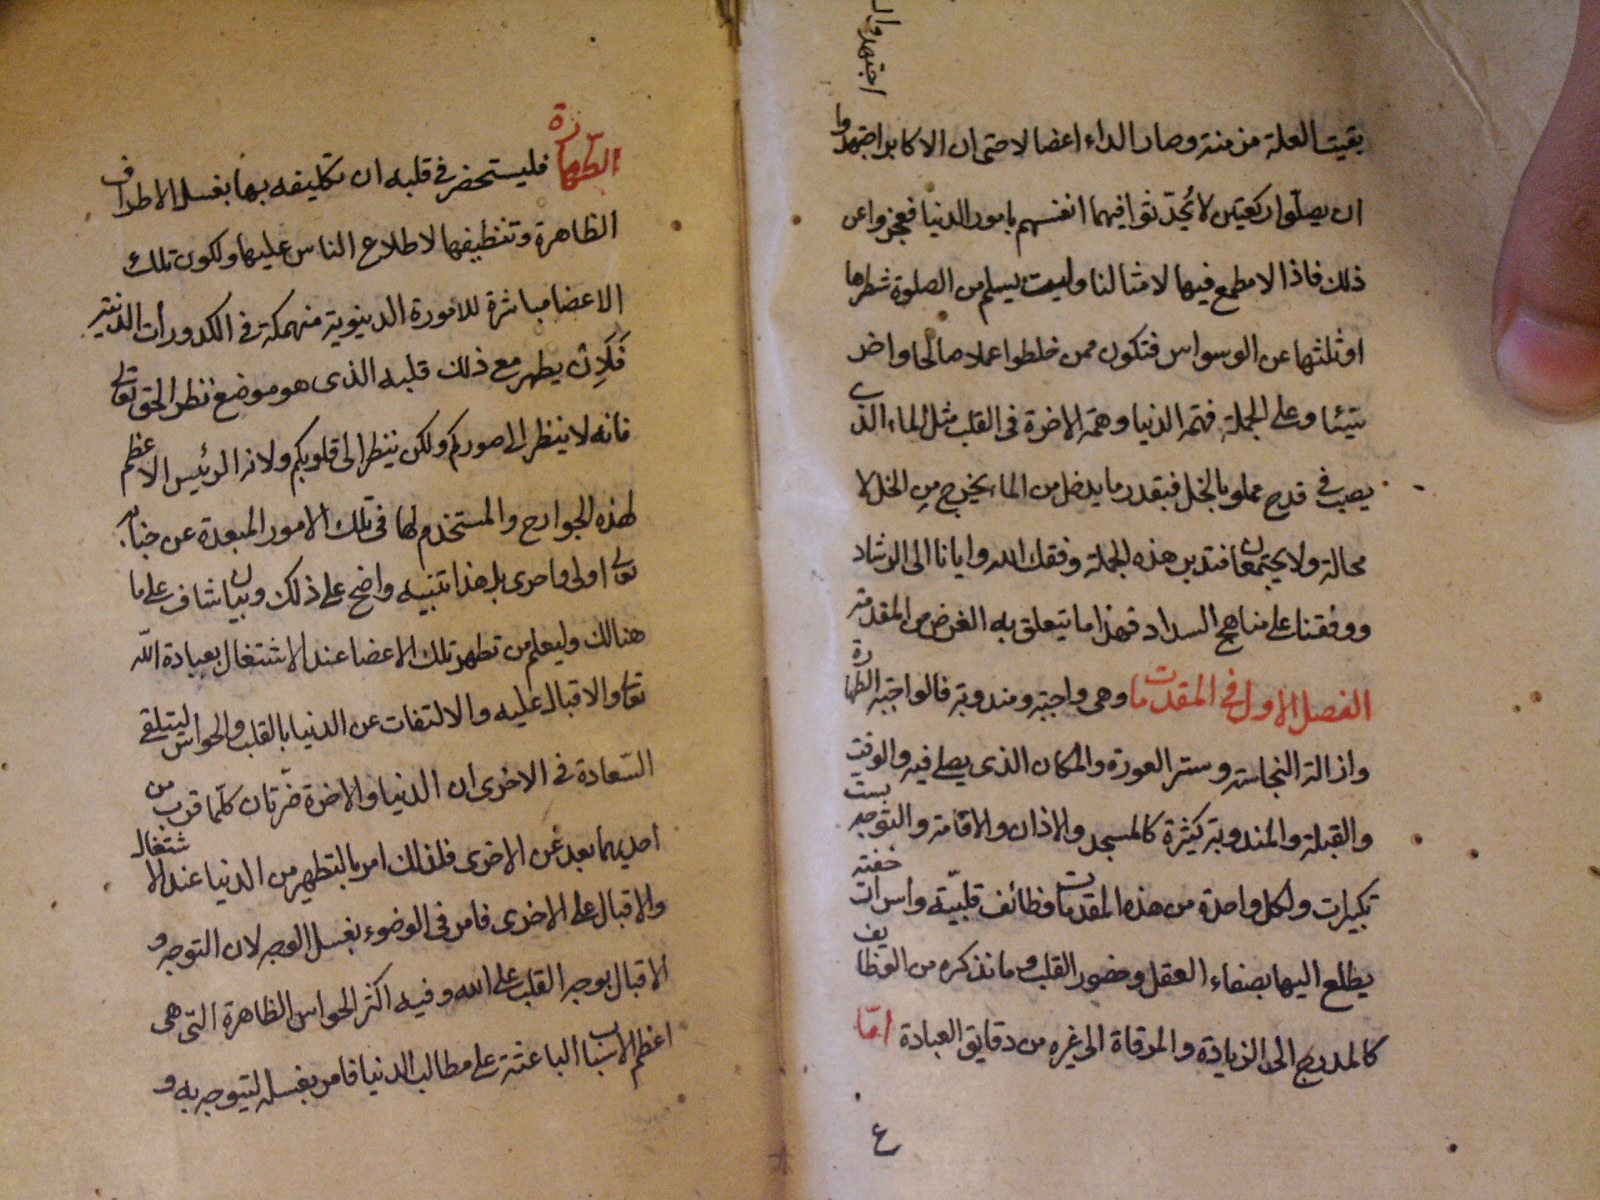 اجتهدوا
بقيت العلة مزمنة وصار الداء اعضالا حتى ان الاكابر اجتهدوا
ان يصلّوا ركعتين لا يُحدّثوا فيهما انفسهم بامور الدنيا فعجزوا عن
ذلك فاذا لا مطمع فيها لامثالنا وليت يسلم من الصلوة شطرها
او ثلثها عن الوسواس فتكون ممن خلطوا عملا صالحا واخر
سيّئا وعلى الجملة فهمّة الدنيا وهمّة الاخرة فى القلب مثل الماء الذى
يصب فى قدح مملو بالخل فبقدر ما يدخل من الماء يخرج مِن الخل لا
محالة ولا يجتمعان فتدبر هذه الجملة وفقك الله وايانا الى الرشاد
ووفقنا على مناهج السداد فهذا ما يتعلق به الغرض من المقدمة
الفصل الاول فى المقدمات وهى واجبة ومندوبة فالواجبة الطهارة
وازالة النجاسة وستر العورة والمكان الذى يصلى فيه والوقت
والقبلة والمندوبة كثيرة كالمسجد والاذان والاقامة والتوجه بست
تكبيرات ولكل واحدة من هذه المقدمات وظائف قلبيّة واسرات خفية
يطلع اليها بصفاء العقل وحضور القلب وما نذكره من الوظايف
كالمدرج الى الزيادة والمرقاة الى غيره من دقايق العبادة امّا
ع
الطّهارة فليستحضر فى قلبه ان تكليفه بها بغسل الاطراف
الظاهرة وتنظيفها لاطلاع الناس عليها ولكون تلك
الاعضا مباشرة للامورة الدينوية منهمكة فى الكدورات الدنية
فَلَاِن يطهر مع ذلك قلبه الذى هو موضع نظر الحق تعالى
فانه لا ينظر الى صوركم ولكن ينظر الى قلوبكم ولانه الرئيس الاعظم
لهذه الجوارح والمستخدم لها فى تلك الامور المبعدة عن جنابه
تعالى اولى واحرى بل هذا تنبيه واضح على ذلك وبيان شاف على ما
هنالك وليعلم من تطهر تلك الاعضا عند الاشتغال بعبادة الله
تعالى والاقبال عليه والالتفات عن الدنيا بالقلب والحواس ليتلقى
السّعادة فى الاخرى ان الدنيا والاخرة ضرّتان كلّما قرب من
احديهما بعد عن الاخرى فلذلك امر بالتطهير من الدنيا عند الاشتغال
والاقبال على الاخرى فامر فى الوضوء بغسل الوجه لان التوجه و
الاقبال بوجه القلب على الله وفيه اكثر الحواس الظاهرة التى هى
اعظم الاسباب الباعثة على مطالب الدنيا فامر بغسله ليتوجه به و